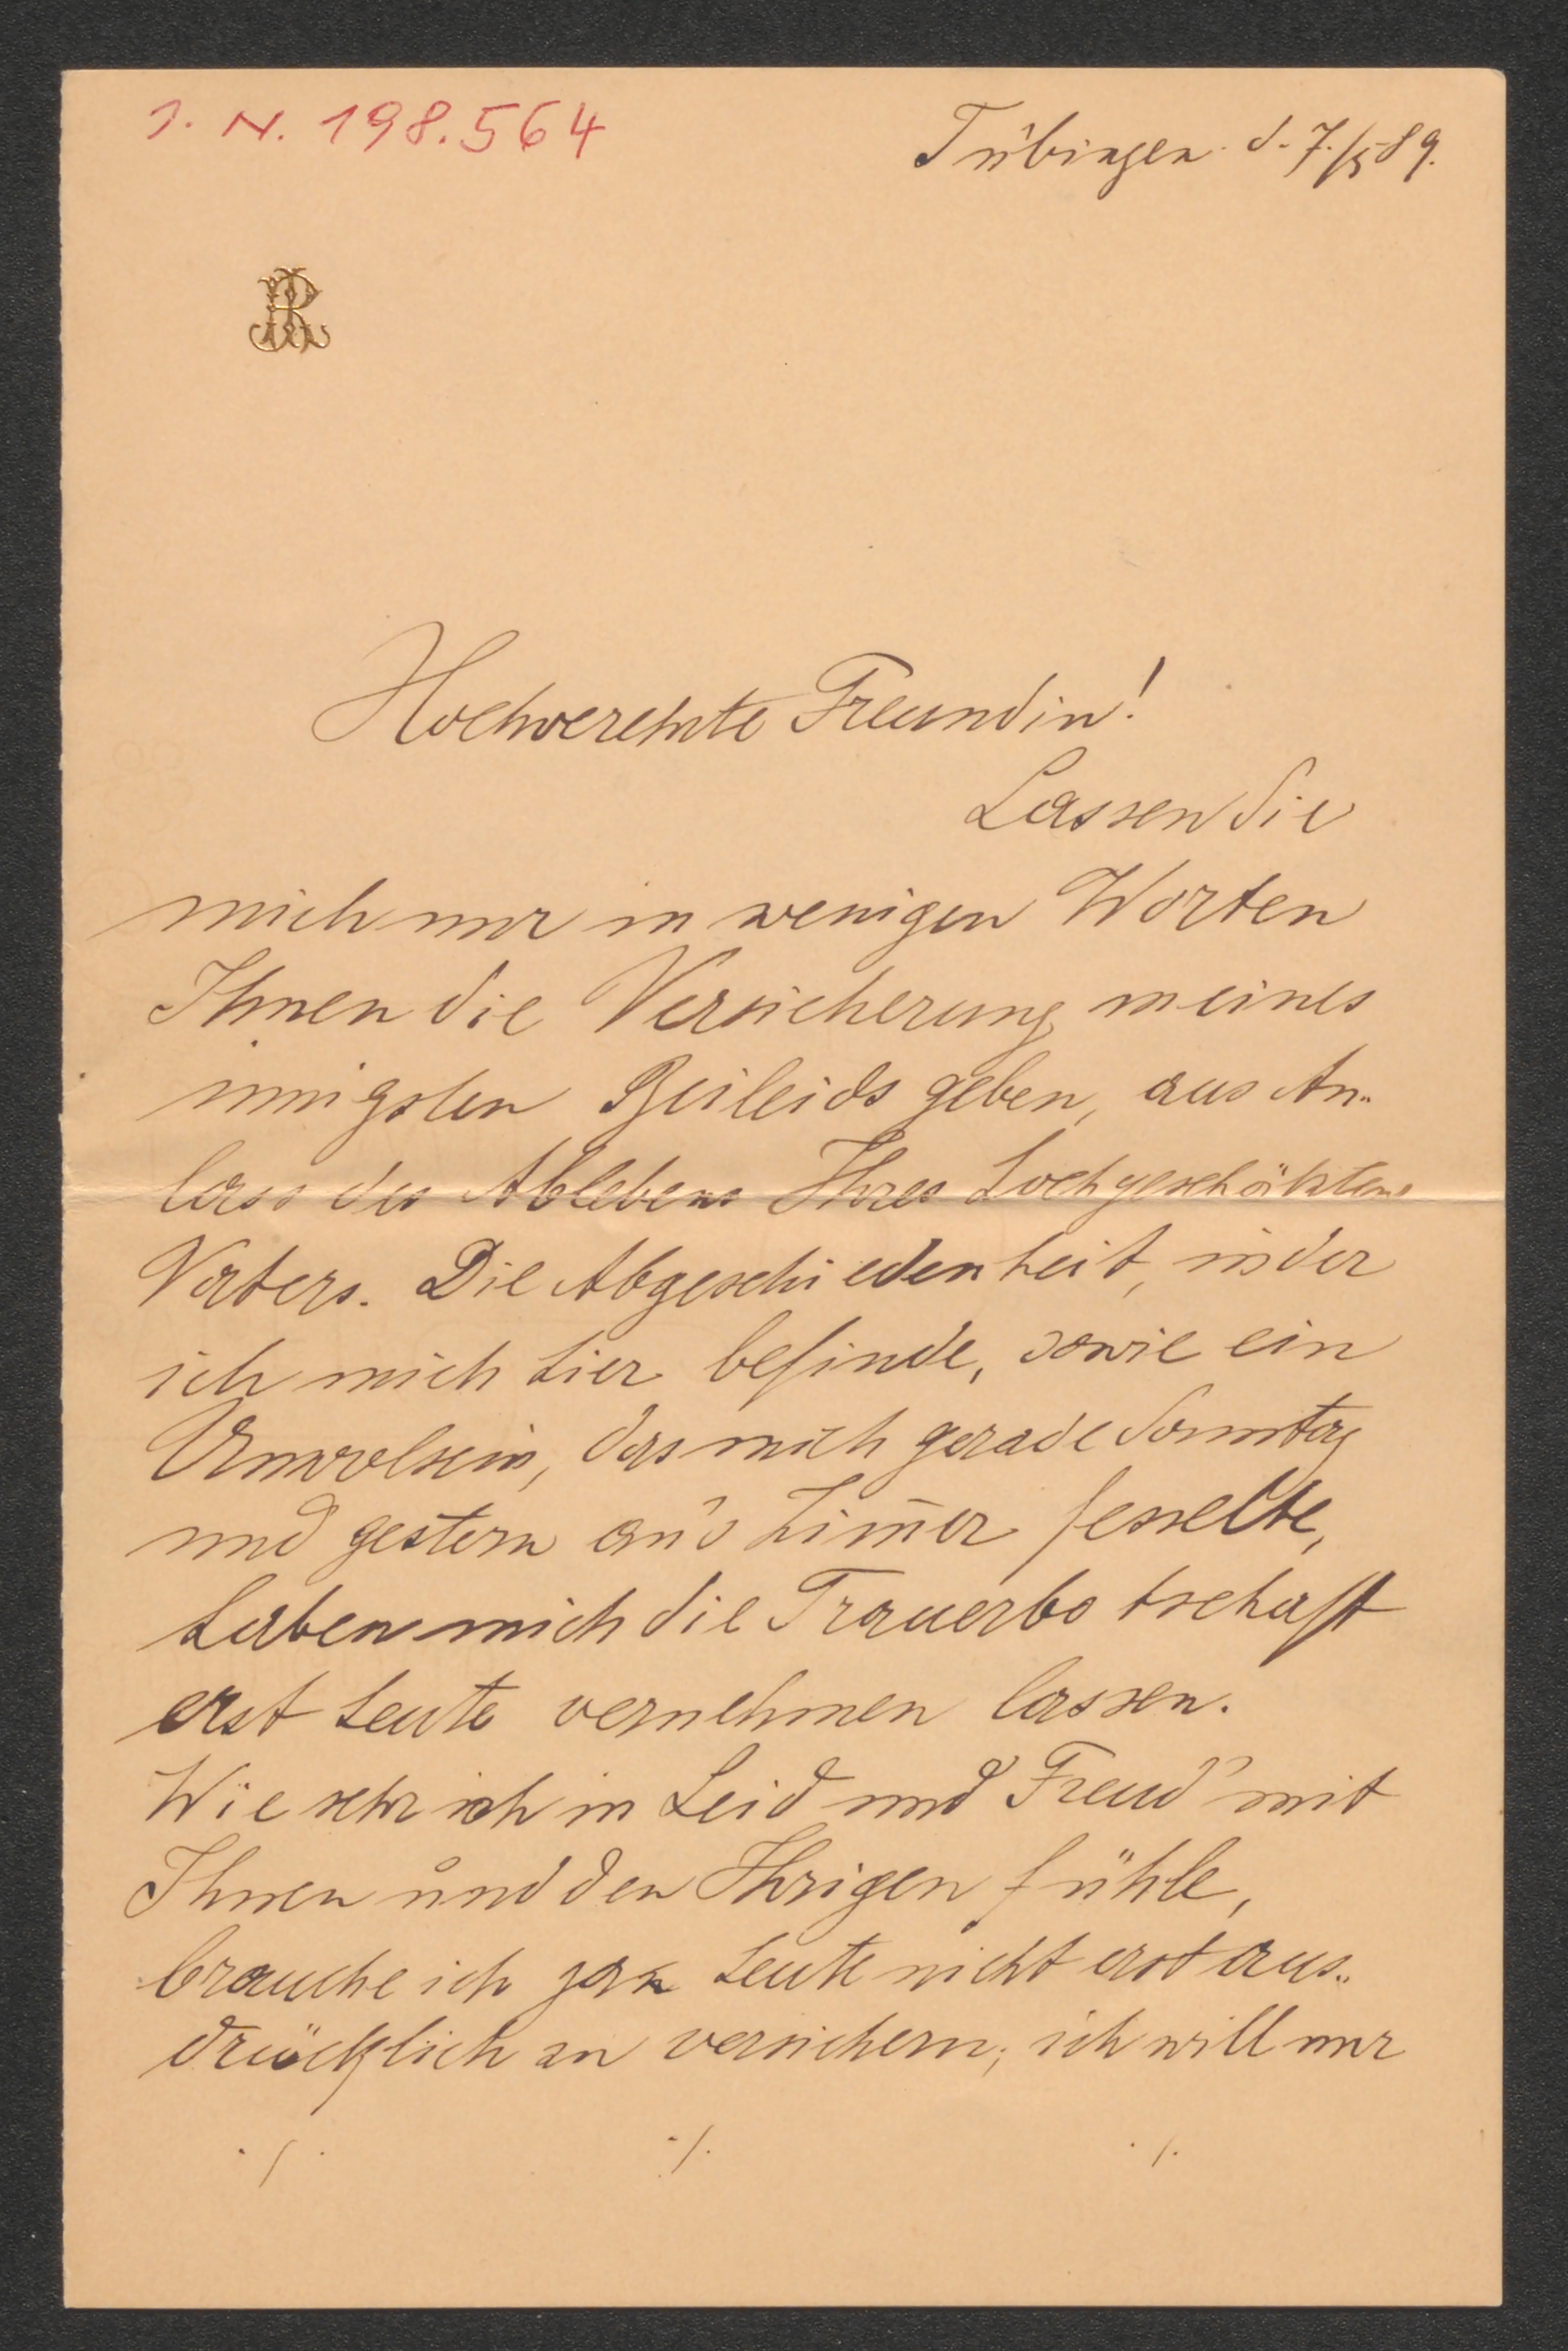 J. N. 198.564
Tübingen. d. 7./5 89.
JR
Hochverehrte Freundin!
Lassen Sie
mich nur in wenigen Worten
Ihnen die Versicherung meines
innigsten Beileids geben, aus An-
lass des Ablebens Ihres hochgeschätzten
Vaters. Die Abgeschiedenheit, in der
ich mich hier befinde, sowie ein
Unwolsein, das mich gerade Sonntag
und gestern an's Zim̄er fesselte,
haben mich die Trauerbotschaft
erst heute vernehmen lassen.
Wie sehr ich in Leid und Freud' mit
Ihnen und den Ihrigen fühle,
brauche ich heute nicht erst aus-
drücklich zu versichern; ich will nur
./. ./. ./.